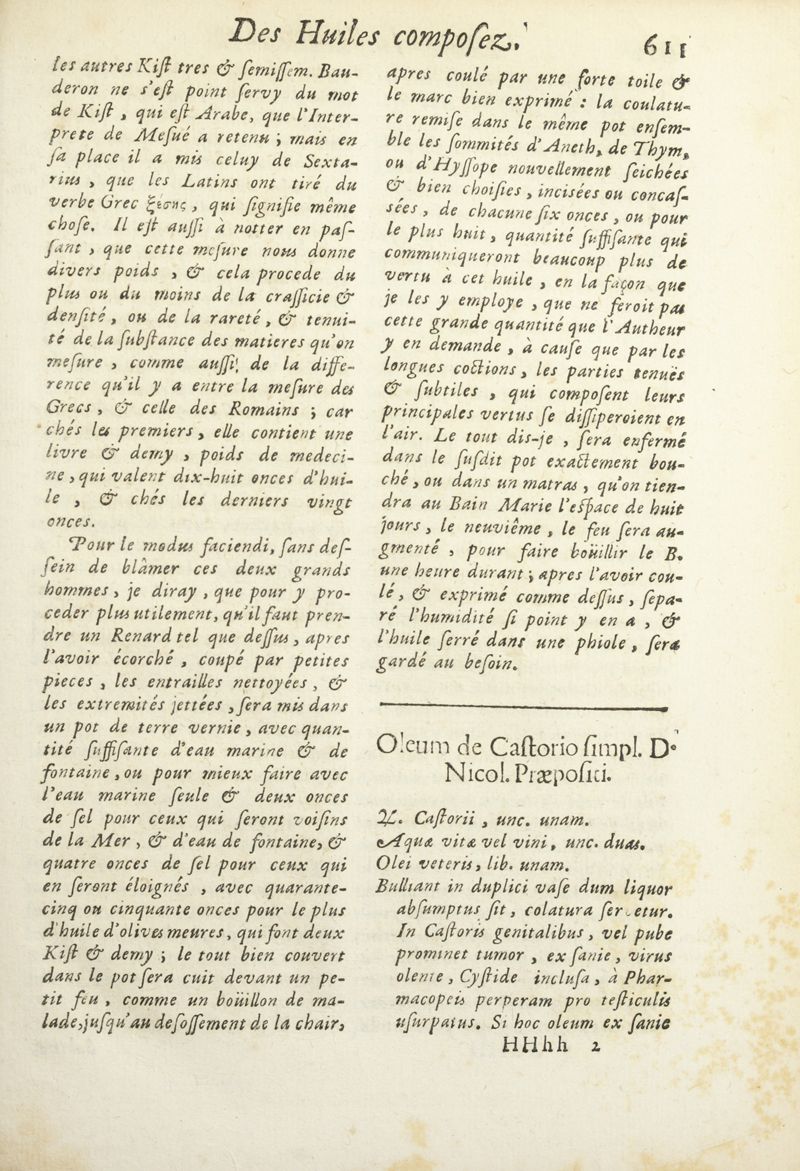 Des Huiles composez.
611
les autres Kist tres & semissem. Bau-
deron ne s'est point servy du mot
de Kist, qui est Arabe, que l'Inter-
prete de Mesué a retenu ; mais en
sa place il a mis celuy de Sexta-
rius, que les Latins ont tiré du
verbe Grec ξέσης, qui signifie même
chose. Il est aussi à notter en pas-
sant, que cette mesure nous donne
divers poids, & cela procede du
plus ou du moins de la crassicie &
densité, ou de la rareté, & tenui-
té de la substance des matieres qu'on
mesure, comme aussi, de la diffe-
rence qu'il y a entre la mesure des
Grecs, & celle des Romains ; car
chés les premiers, elle contient une
livre & demy, poids de medeci-
ne, qui valent dix-huit onces d'hui-
le, & chés les derniers vingt
onces.
Pour le modus faciendi, sans des-
sein de blâmer ces deux grands
hommes, je diray, que pour y pro-
ceder plus utilement, qu'il faut pren-
dre un Renard tel que dessus, apres
l'avoir écorché, coupé par petites
pieces, les entrailles nettoyées, &
les extremités jettées, sera mis dans
un pot de terre vernie, avec quan-
tité suffisante d'eau marine & de
fontaine, ou pour mieux faire avec
l'eau marine seule & deux onces
de sel pour ceux qui seront voisins
de la Mer, & d'eau de fontaine, &
quatre onces de sel pour ceux qui
en seront éloignés, avec quarante-
cinq ou cinquante onces pour le plus
d'huile d'olives meures, qui font deux
Kist & demy ; le tout bien couvert
dans le pot sera cuit devant un pe-
tit feu, comme un boüillon de ma-
lade, jusqu'au desossement de la chair,
apres coulé par une forte toile &
le marc bien exprimé : la coulatu-
re remise dans le même pot ensem-
ble les sommités d'Aneth, de Thym,
ou d'Hyssope nouvellement seichées
& bien choisies, incisées ou concas-
sées, de chacune six onces, ou pour
le plus huit, quantité suffisante qui
communiqueront beaucoup plus de
vertu à cet huile, en la façon que
je les y employe, que ne feroit pas
cette grande quantité que l'Autheur
y en demande, à cause que par les
longues coctions, les parties tenuës
& subtiles, qui composent leurs
principales vertus se dissiperoient en
l'air. Le tout dis-je, sera enfermé
dans le susdit pot exactement bou-
ché, ou dans un matras, qu'on tien-
dra au Bain Marie l'espace de huit
jours, le neuviême, le feu sera au-
gmenté, pour faire boüillir le B.
une heure durant ; apres l'avoir cou-
lé, & exprimé comme dessus, sepa-
ré l'humidité si point y en a, &
l'huile serré dans une phiole, sera
gardé au besoin.
Oleum de Castorio simpl. De
Nicol. Præpositi.
℞. Castorii, unc. unam.
Aquæ vitæ vel vini, unc. duas.
Olei veteris, lib. unam.
Bulliant in duplici vase dum liquor
absumptus sit, colatura servetur.
In Castoris genitalibus, vel pube
prominet tumor, ex sanie, virus
olente, Cystide inclusa, à Phar-
macopeis perperam pro testiculis
usurpatus. Si hoc oleum ex sanie
HHhh 2